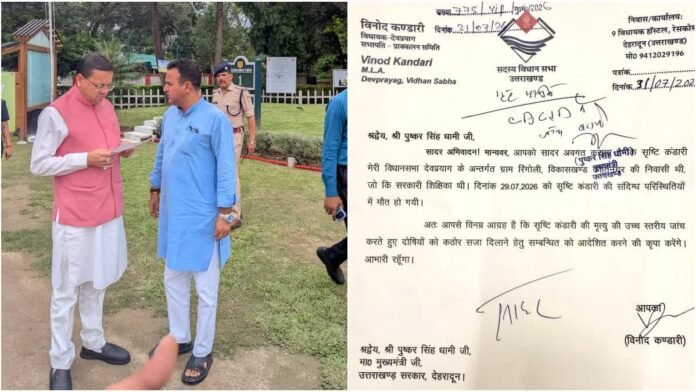 संख्या 775/vip/मु०मं०/2026
दिनांक 31/07/26
विनोद कण्डारी
विधायक-देवप्रयाग
सभापति - प्राक्कलन समिति
Vinod Kandari
M.L.A.
Devprayag, Vidhan Sabha
सदस्य विधान सभा
उत्तराखण्ड
निवास/कार्यालय:
9 विधायक हॉस्टल, रेसकोर्स
देहरादून (उत्तराखण्ड)
मो0 9412029196
पत्रांक
दिनांक 31/07/202
CBCID
जाँच
श्रद्वेय, श्री पुष्कर सिंह धामी जी,
(पुष्कर सिंह धामी)
मुख्यमंत्री
उत्तराखण्ड
सादर अभिवादन! मान्यवर, आपको सादर अवगत कराना कि सृष्टि कंडारी
मेरी विधानसभा देवप्रयाग के अन्तर्गत ग्राम रिंगोली, विकासखण्ड की निवासी थी,
जो कि सरकारी शिक्षिका थी। दिनांक 29.07.2026 को सृष्टि कंडारी की संदिग्ध परिस्थितियों
में मौत हो गयी।
अतः आपसे विनम्र आग्रह है कि सृष्टि कंडारी की मृत्यु की उच्च स्तरीय जांच
करते हुए दोषियों को कठोर सजा दिलाने हेतु सम्बन्धित को आदेशित करने की कृपा करेंगे।
आभारी रहूंगा।
आपका
(विनोद कण्डारी)
श्रद्वेय, श्री पुष्कर सिंह धामी जी,
मा0 मुख्यमंत्री जी,
उत्तराखण्ड सरकार, देहरादून।